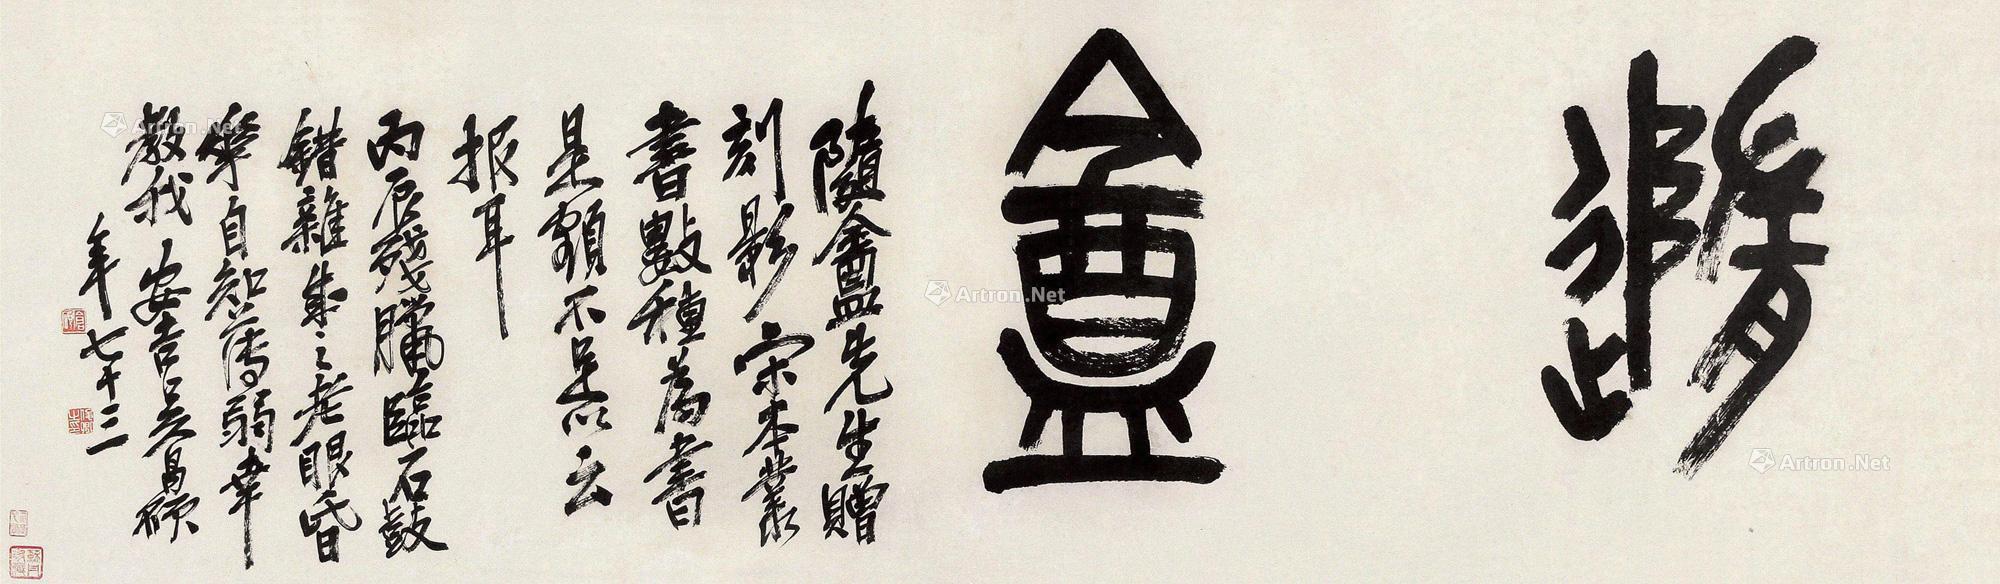 隨盦
隨盦先生贈
刻影宋本叢
書數種為書
是額不足以云
报耳
丙辰殘臘臨石鼓
錯雜成之老眼昏
眊自知薄弱幸
教我安吉吳昌碩
年七十三
Artron.Net
Artron.Net
Artron.Net